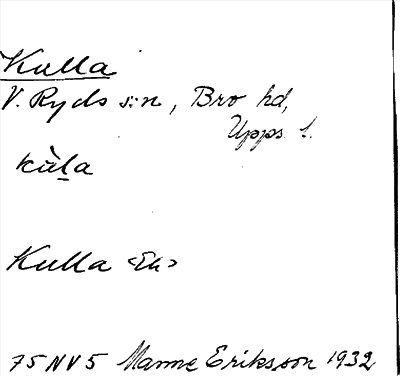 Kulla
V. Ryds s:n, Bro hd,
Upps l.
kùl̠a
Kulla <Ek>
75 NV 5 Manne Eriksson 1932